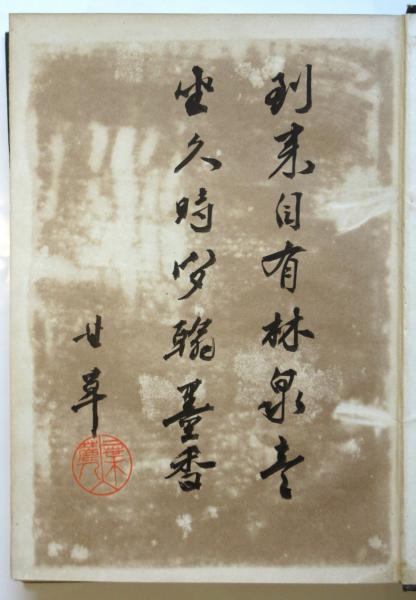 到来自有林泉意
坐久時聞翰墨香
甘草